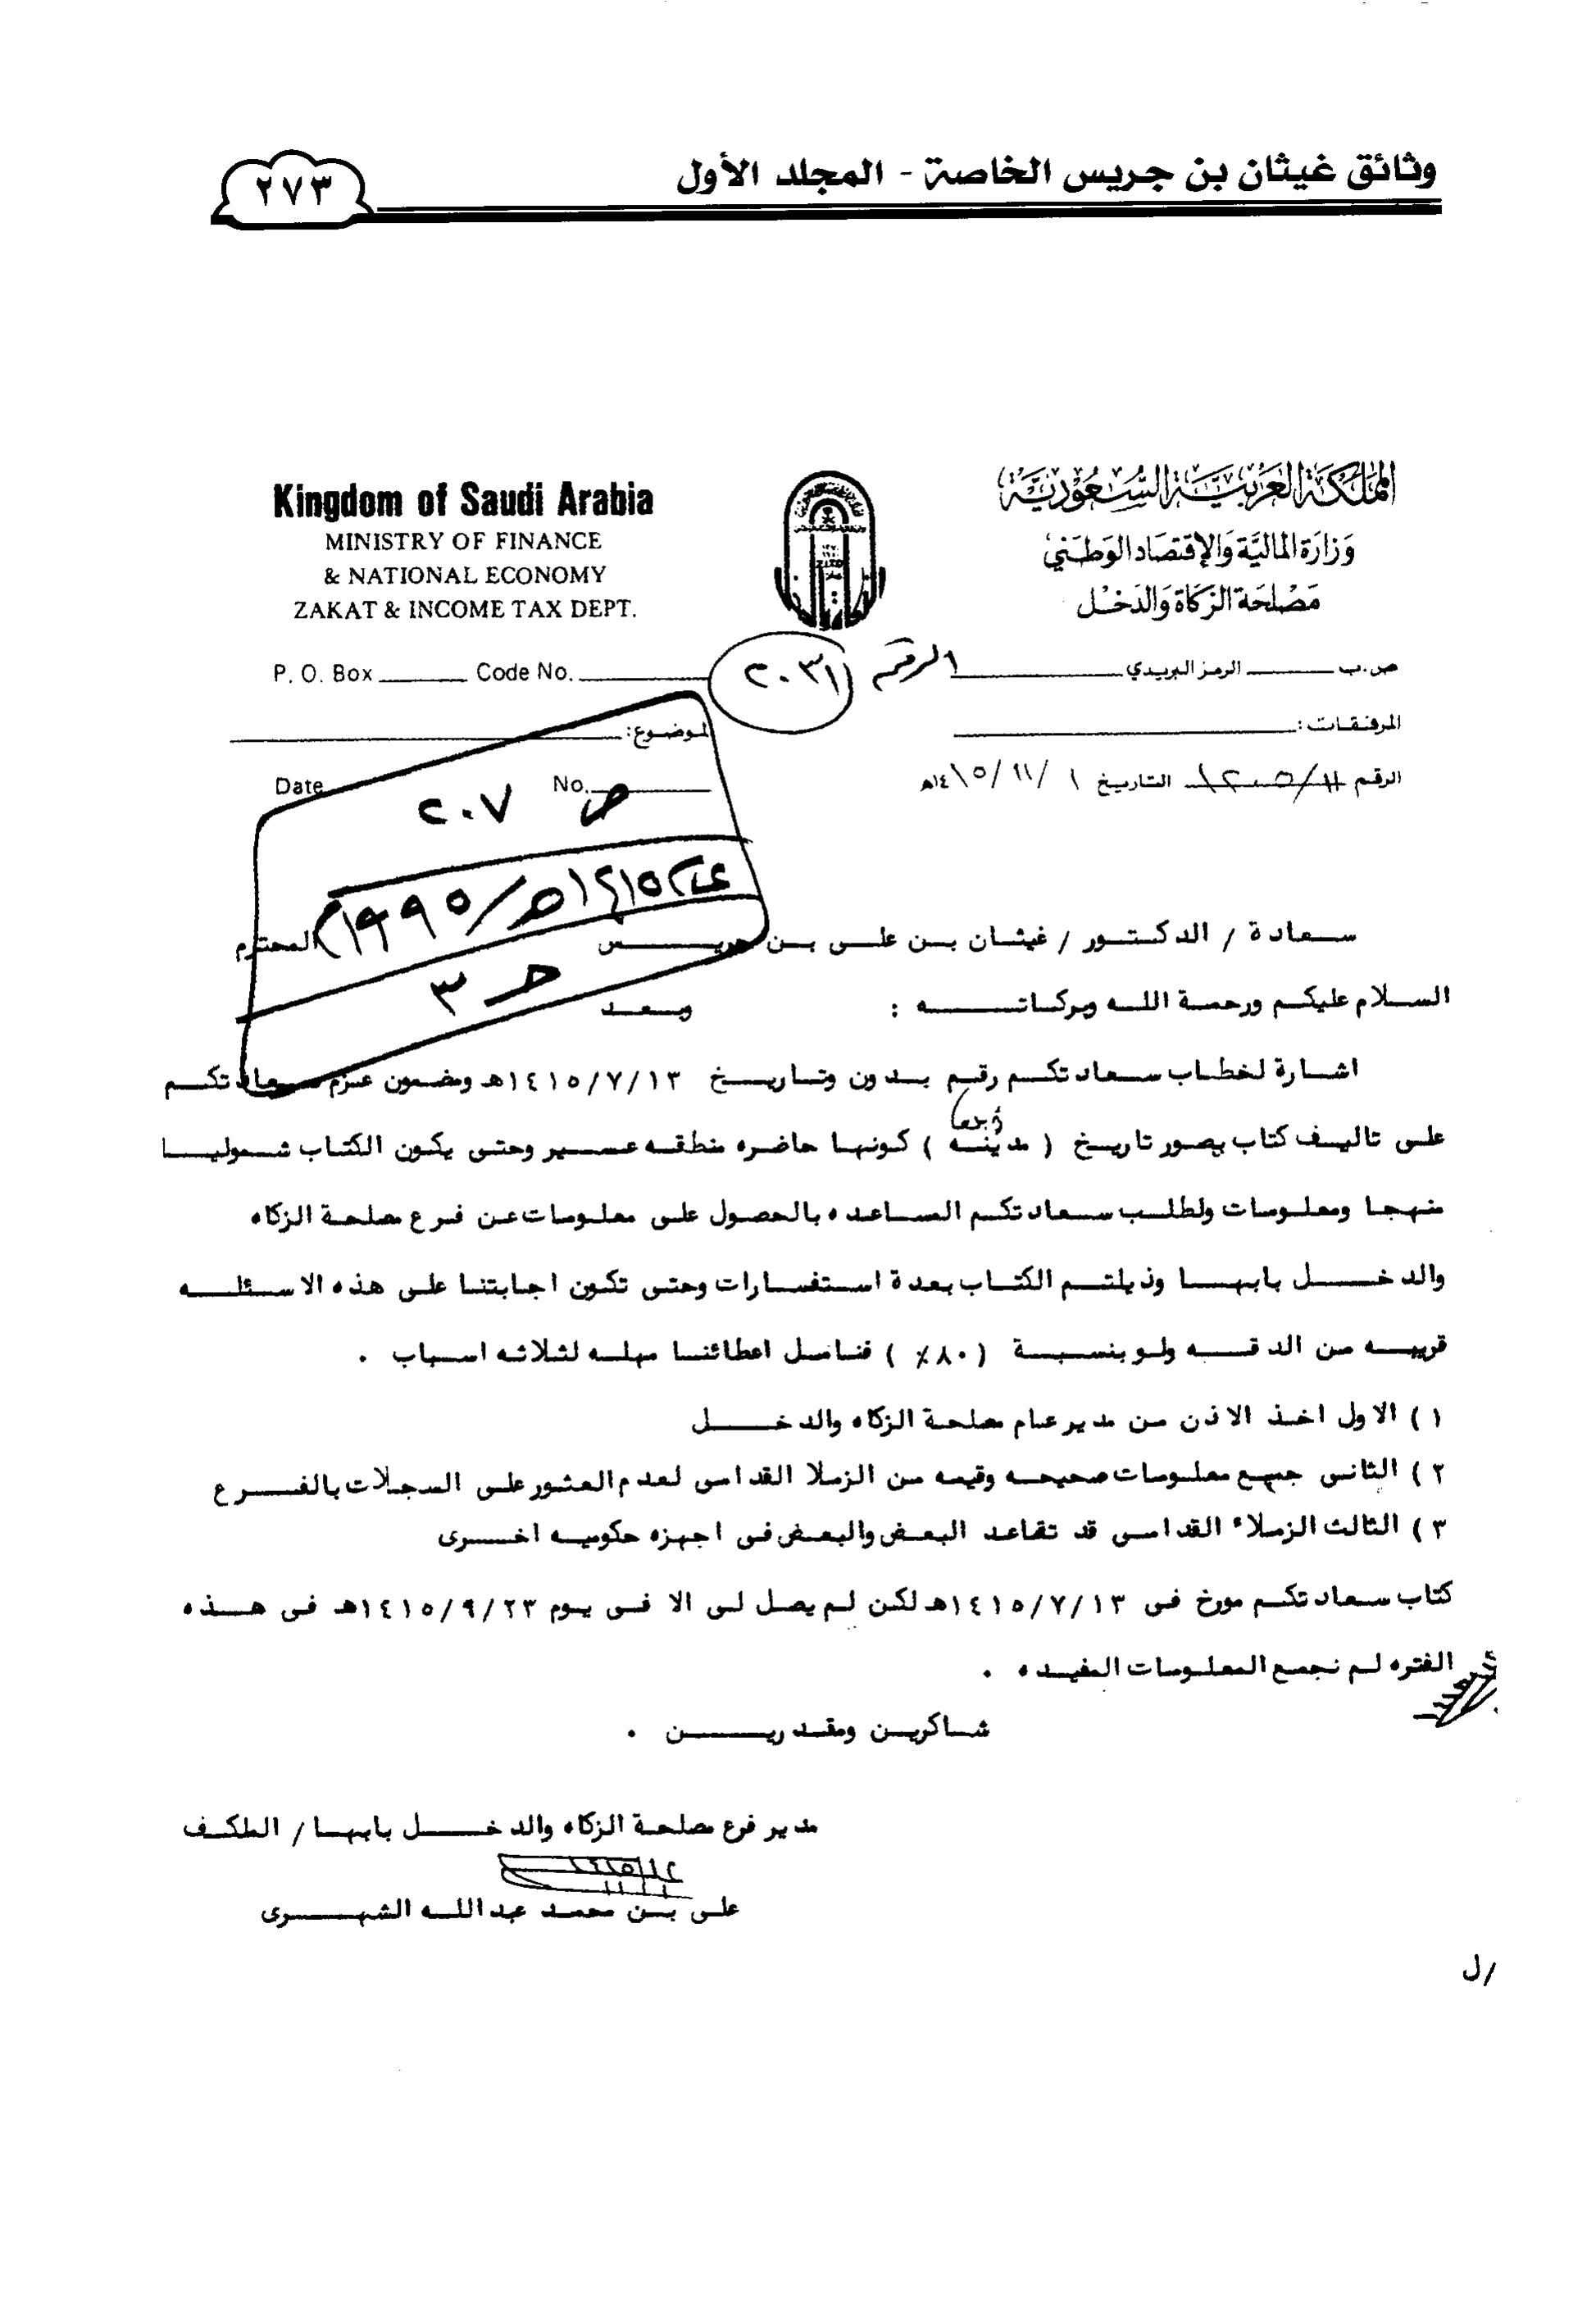 وثائق غيثان بن جريس الخاصة - المجلد الأول
٢٧٣
المملكة العربية السعودية
وزارة المالية والاقتصاد الوطني
مصلحة الزكاة والدخل
Kingdom of Saudi Arabia
MINISTRY OF FINANCE
& NATIONAL ECONOMY
ZAKAT & INCOME TAX DEPT.
ص.ب الرمز البريدي
الرقم ٢٠٣١
P. O. Box Code No.
المرفقات:
الموضوع:
الرقم التاريخ ١ / ١١ / ١٤١٥هـ
Date No.
ص ٢٠٧
١٤١٥هـ/١٩٩٥م
حـ ٣
سعادة / الدكتور / غيثان بن على بن جريس المحترم
السلام عليكم ورحمة الله وبركاته : وبعد
اشارة لخطاب سعادتكم رقم بدون وتاريخ ١٤١٥/٧/١٣هـ ومضمون عزم سعادتكم
على تاليف كتاب يصور تاريخ ( مدينه أبها ) كونها حاضره منطقه عسير وحتى يكون الكتاب شموليا
منهجا ومعلومات ولطلب سعادتكم المساعده بالحصول على معلومات عن فرع مصلحة الزكاه
والدخل بابها وذيلتم الكتاب بعدة استفسارات وحتى تكون اجابتنا على هذه الاسئله
قريبه من الدقه ولو بنسبة ( ٨٠٪ ) فنامل اعطائنا مهله لثلاثه اسباب .
١ ) الاول اخذ الاذن من مدير عام مصلحة الزكاه والدخل
٢ ) الثانى جمع معلومات صحيحه وقيمه من الزملا القدامى لعدم العثور على السجلات بالفرع
٣ ) الثالث الزملاء القدامى قد تقاعد البعض والبعض فى اجهزه حكوميه اخرى
كتاب سعادتكم مورخ فى ١٤١٥/٧/١٣هـ لكن لم يصل لى الا فى يوم ١٤١٥/٩/٢٣هـ فى هذه
الفتره لم نجمع المعلومات المفيده .
شاكرين ومقدرين .
مدير فرع مصلحة الزكاه والدخل بابها / المكلف
على بن محمد عبدالله الشهرى
/ل